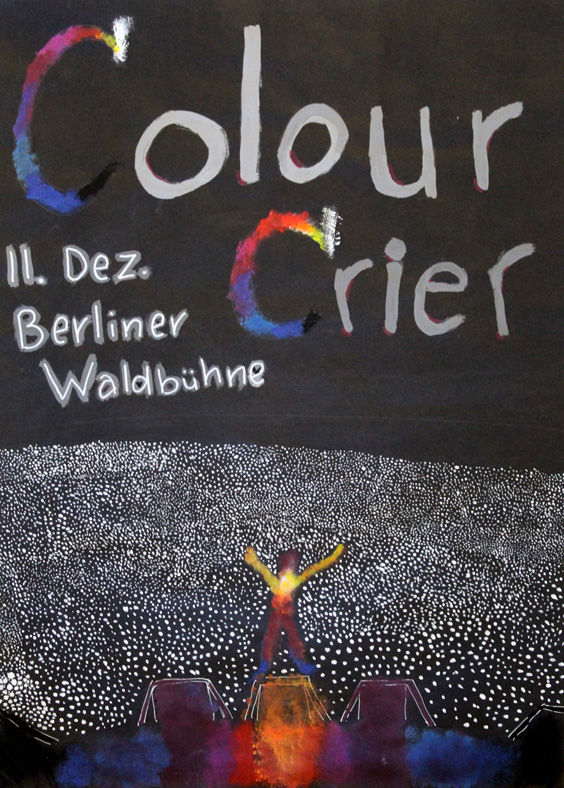 Colour
Crier
11. Dez.
Berliner
Waldbühne